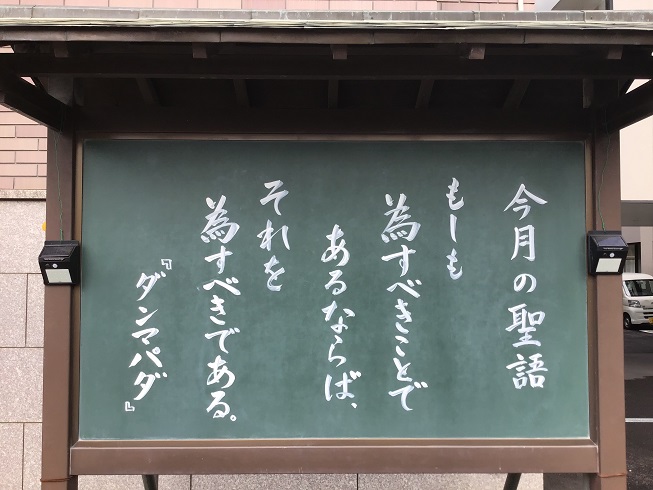 今月の聖語
もしも
為すべきことで
あるならば、
それを
為すべきである。
『ダンマパダ』